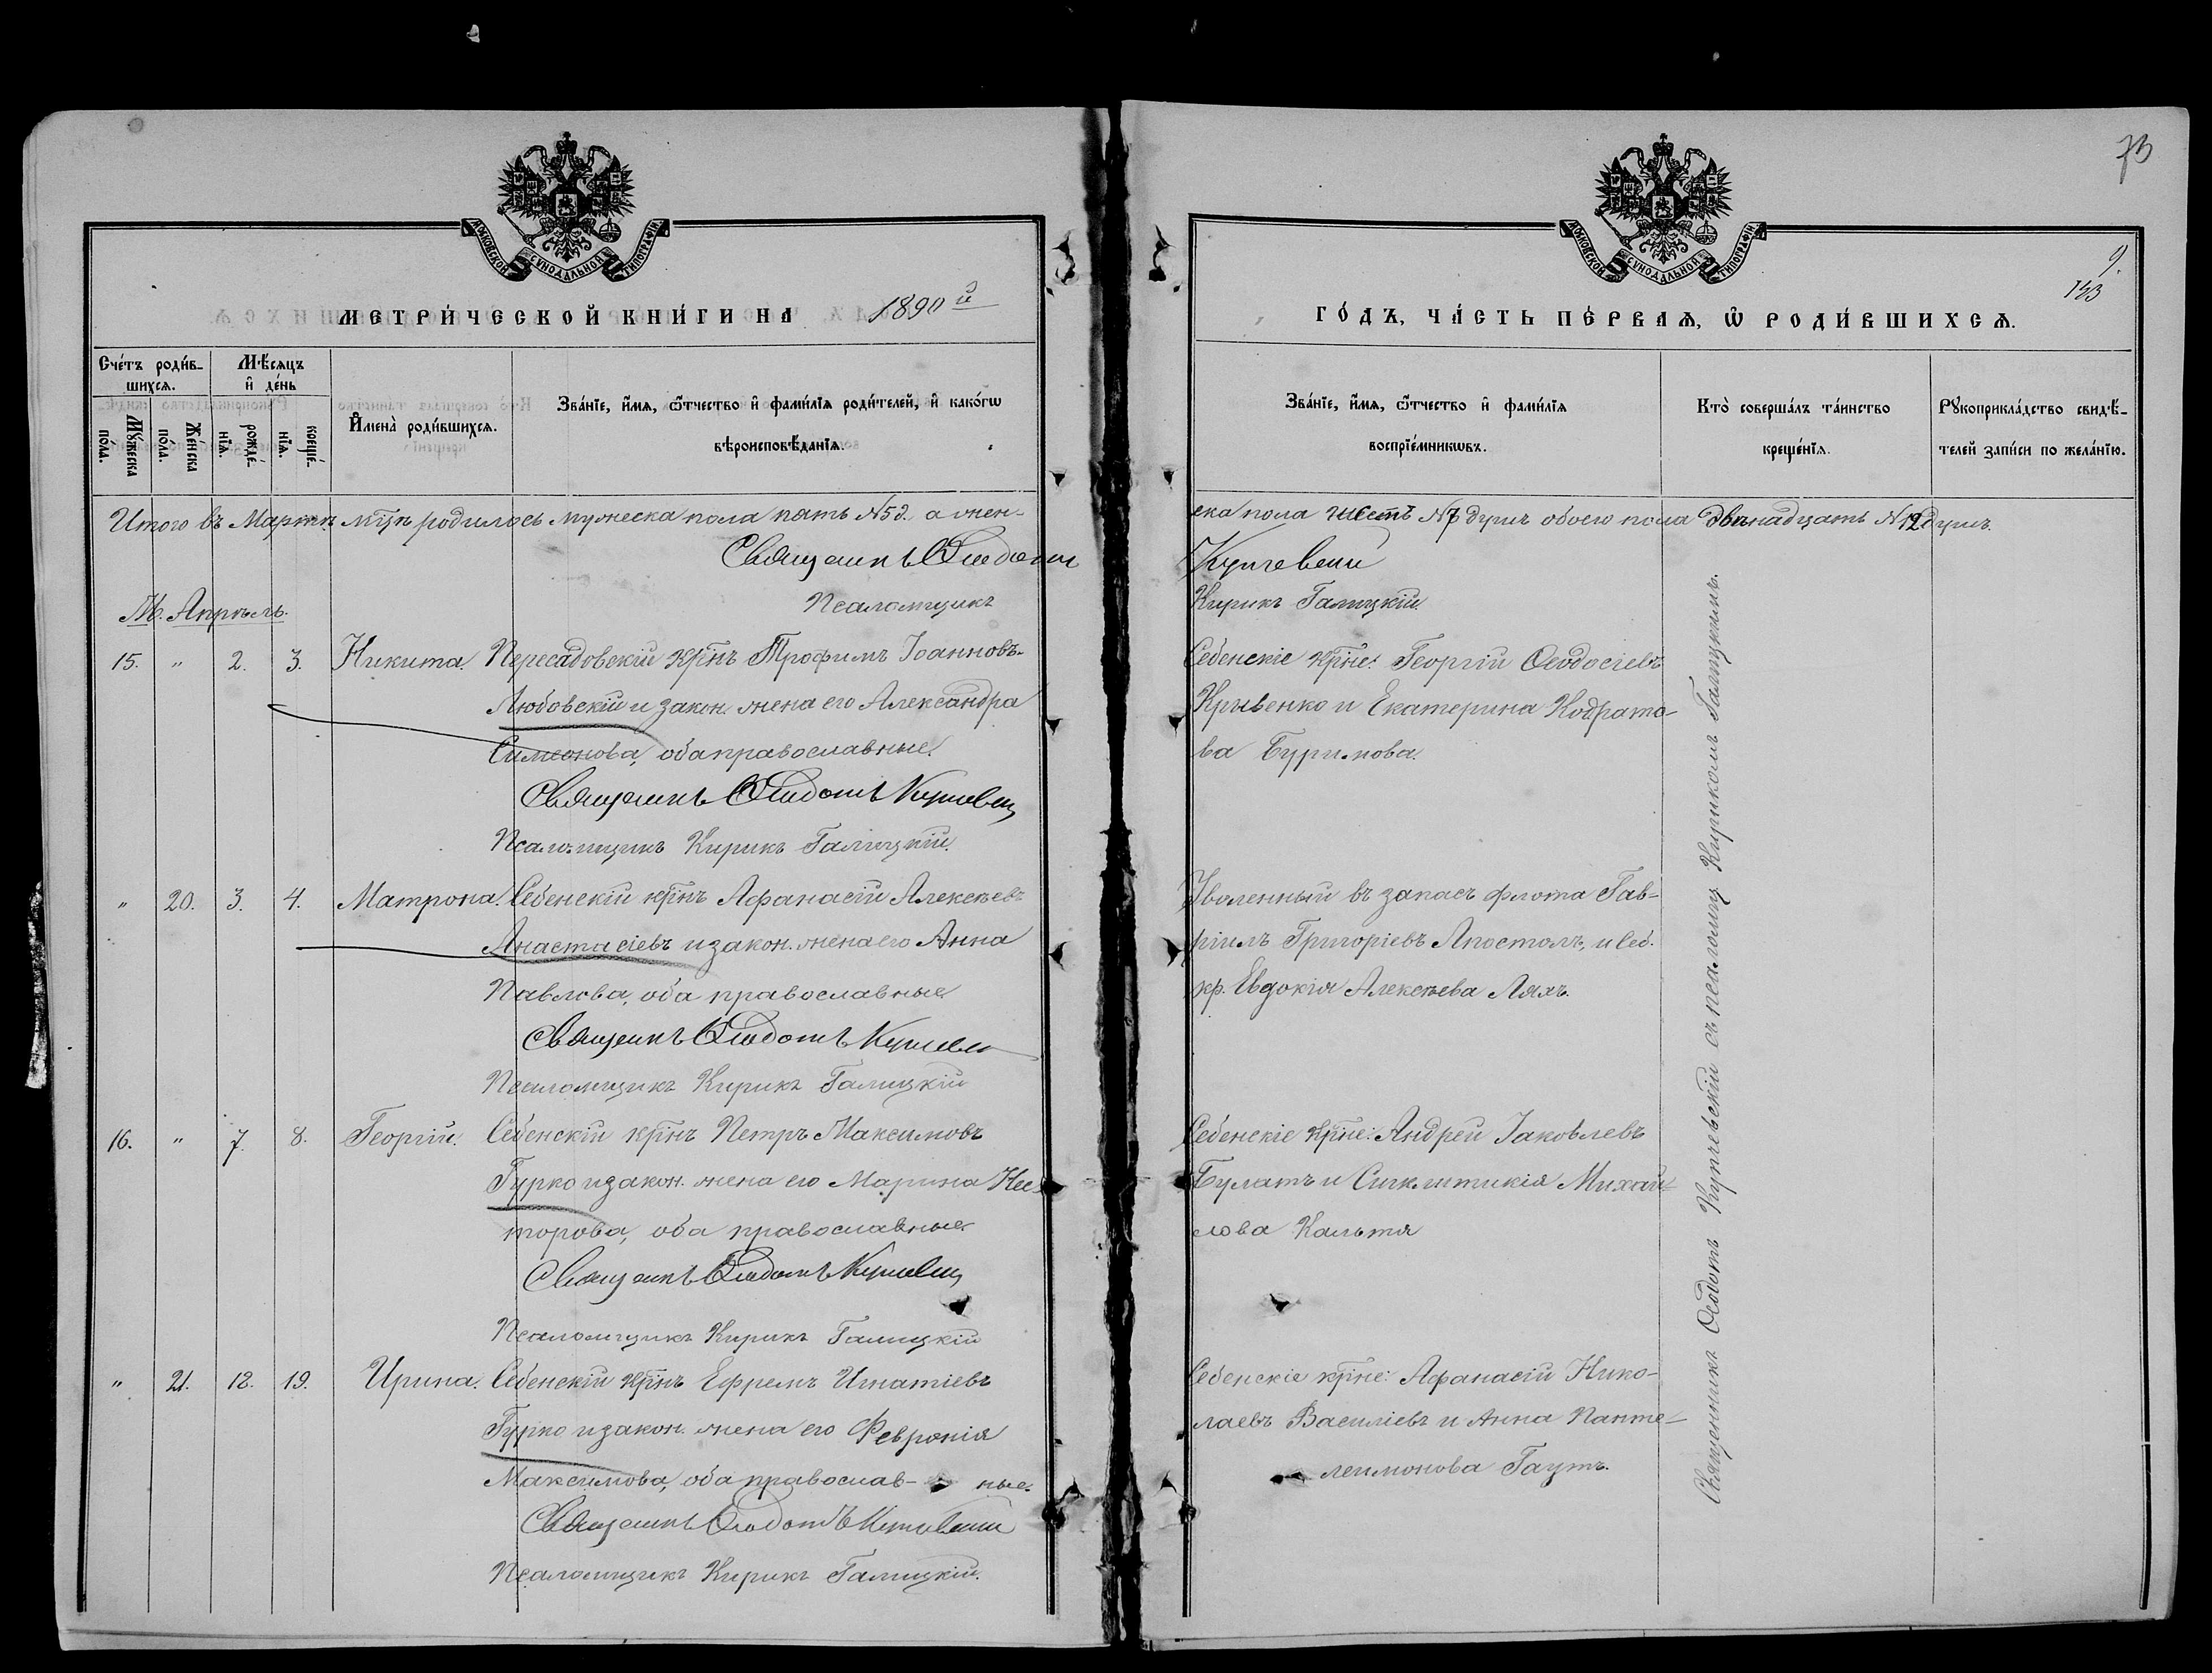 73
МОСКОВСКОЙ СѴНОДАЛЬНОЙ ТИПОГРАФІИ
МОСКОВСКОЙ СѴНОДАЛЬНОЙ ТИПОГРАФІИ
9.
143
МЕТРИ́ЧЕСКОЙ КНИ́ГИ НА 1890й
ГО́ДЪ, ЧА́СТЬ ПЕ́РВАѦ, Ѡ҆ РОДИ́ВШИХСѦ.
Сче́тъ роди́в-
шихсѧ.
Мѹ́жеска по́ла.
Же́нска по́ла.
Мѣ́сѧцъ
и҆ де́нь
рожде́-нїѧ.
креще́-нїѧ.
И҆мена̀ роди́вшихсѧ.
Зва́нїе, и҆́мѧ, ѻ҆́тчество и҆ фамі́лїѧ роди́телей, и҆ како́гѡ
вѣроисповѣ́данїѧ.
Зва́нїе, и҆́мѧ, ѻ҆́тчество и҆ фами́лїѧ
воспрїе́мникѡвъ.
Кто̀ соверша́лъ та́инство
креще́нїѧ.
Рѹкоприкла́дство свидѣ́-
телей за́писи по жела́нїю.
Итого въ Мартѣ мцѣ родилось мужеска пола пять №5 д. а жен-
ска пола шесть №7 душъ обоего пола двѣнадцать №12 душъ.
Священникъ Ѳеодотъ
Купчевскій
Псаломщикъ
Кирикъ Галицкій.
М. Апрѣль.
15. " 2. 3. Никита. Пересадовскій крнъ Трофимъ Іоанновъ
Любовскій и закон. жена его Александра
Симеонова, оба православные.
Священникъ Ѳеодотъ Купчевскій
Псаломщикъ Кирикъ Галицкій.
Себенскіе крне: Георгій Ѳеодосіевъ
Кривенко и Екатерина Кодрато-
ва Буримова.
" 20. 3. 4. Матрона. Себенскій крнъ Афанасій Алексѣевъ
Анастасіевъ и закон. жена его Анна
Павлова, оба православные.
Священникъ Ѳеодотъ Купчевскій
Псаломщикъ Кирикъ Галицкій
Уволенный въ запасъ флота Гав-
ріилъ Григоріевъ Апостолъ, и Себ.
кр. Евдокія Алексѣева Ляхъ.
16. " 7. 8. Георгій. Себенскій крнъ Петръ Максимовъ
Гурко и закон. жена его Марина Нес-
торова, оба православные.
Священникъ Ѳеодотъ Купчевскій
Псаломщикъ Кирикъ Галицкій
Себенскіе крне: Андрей Іаковлевъ
Булатъ и Сигклитикія Михай-
лова Кальтя
" 21. 18. 19. Ирина. Себенскій крнъ Ефремъ Игнатіевъ
Гурко и закон. жена его Февронія
Максимова, оба православ- ные.
Священникъ Ѳеодотъ Купчевскій
Псаломщикъ Кирикъ Галицкій.
Себенскіе крне: Афанасій Нико-
лаевъ Василіевъ и Анна Панте-
леимонова Гаутъ.
Священникъ Ѳеодотъ Купчевскій съ псаломщ Кирикомъ Галицкимъ.